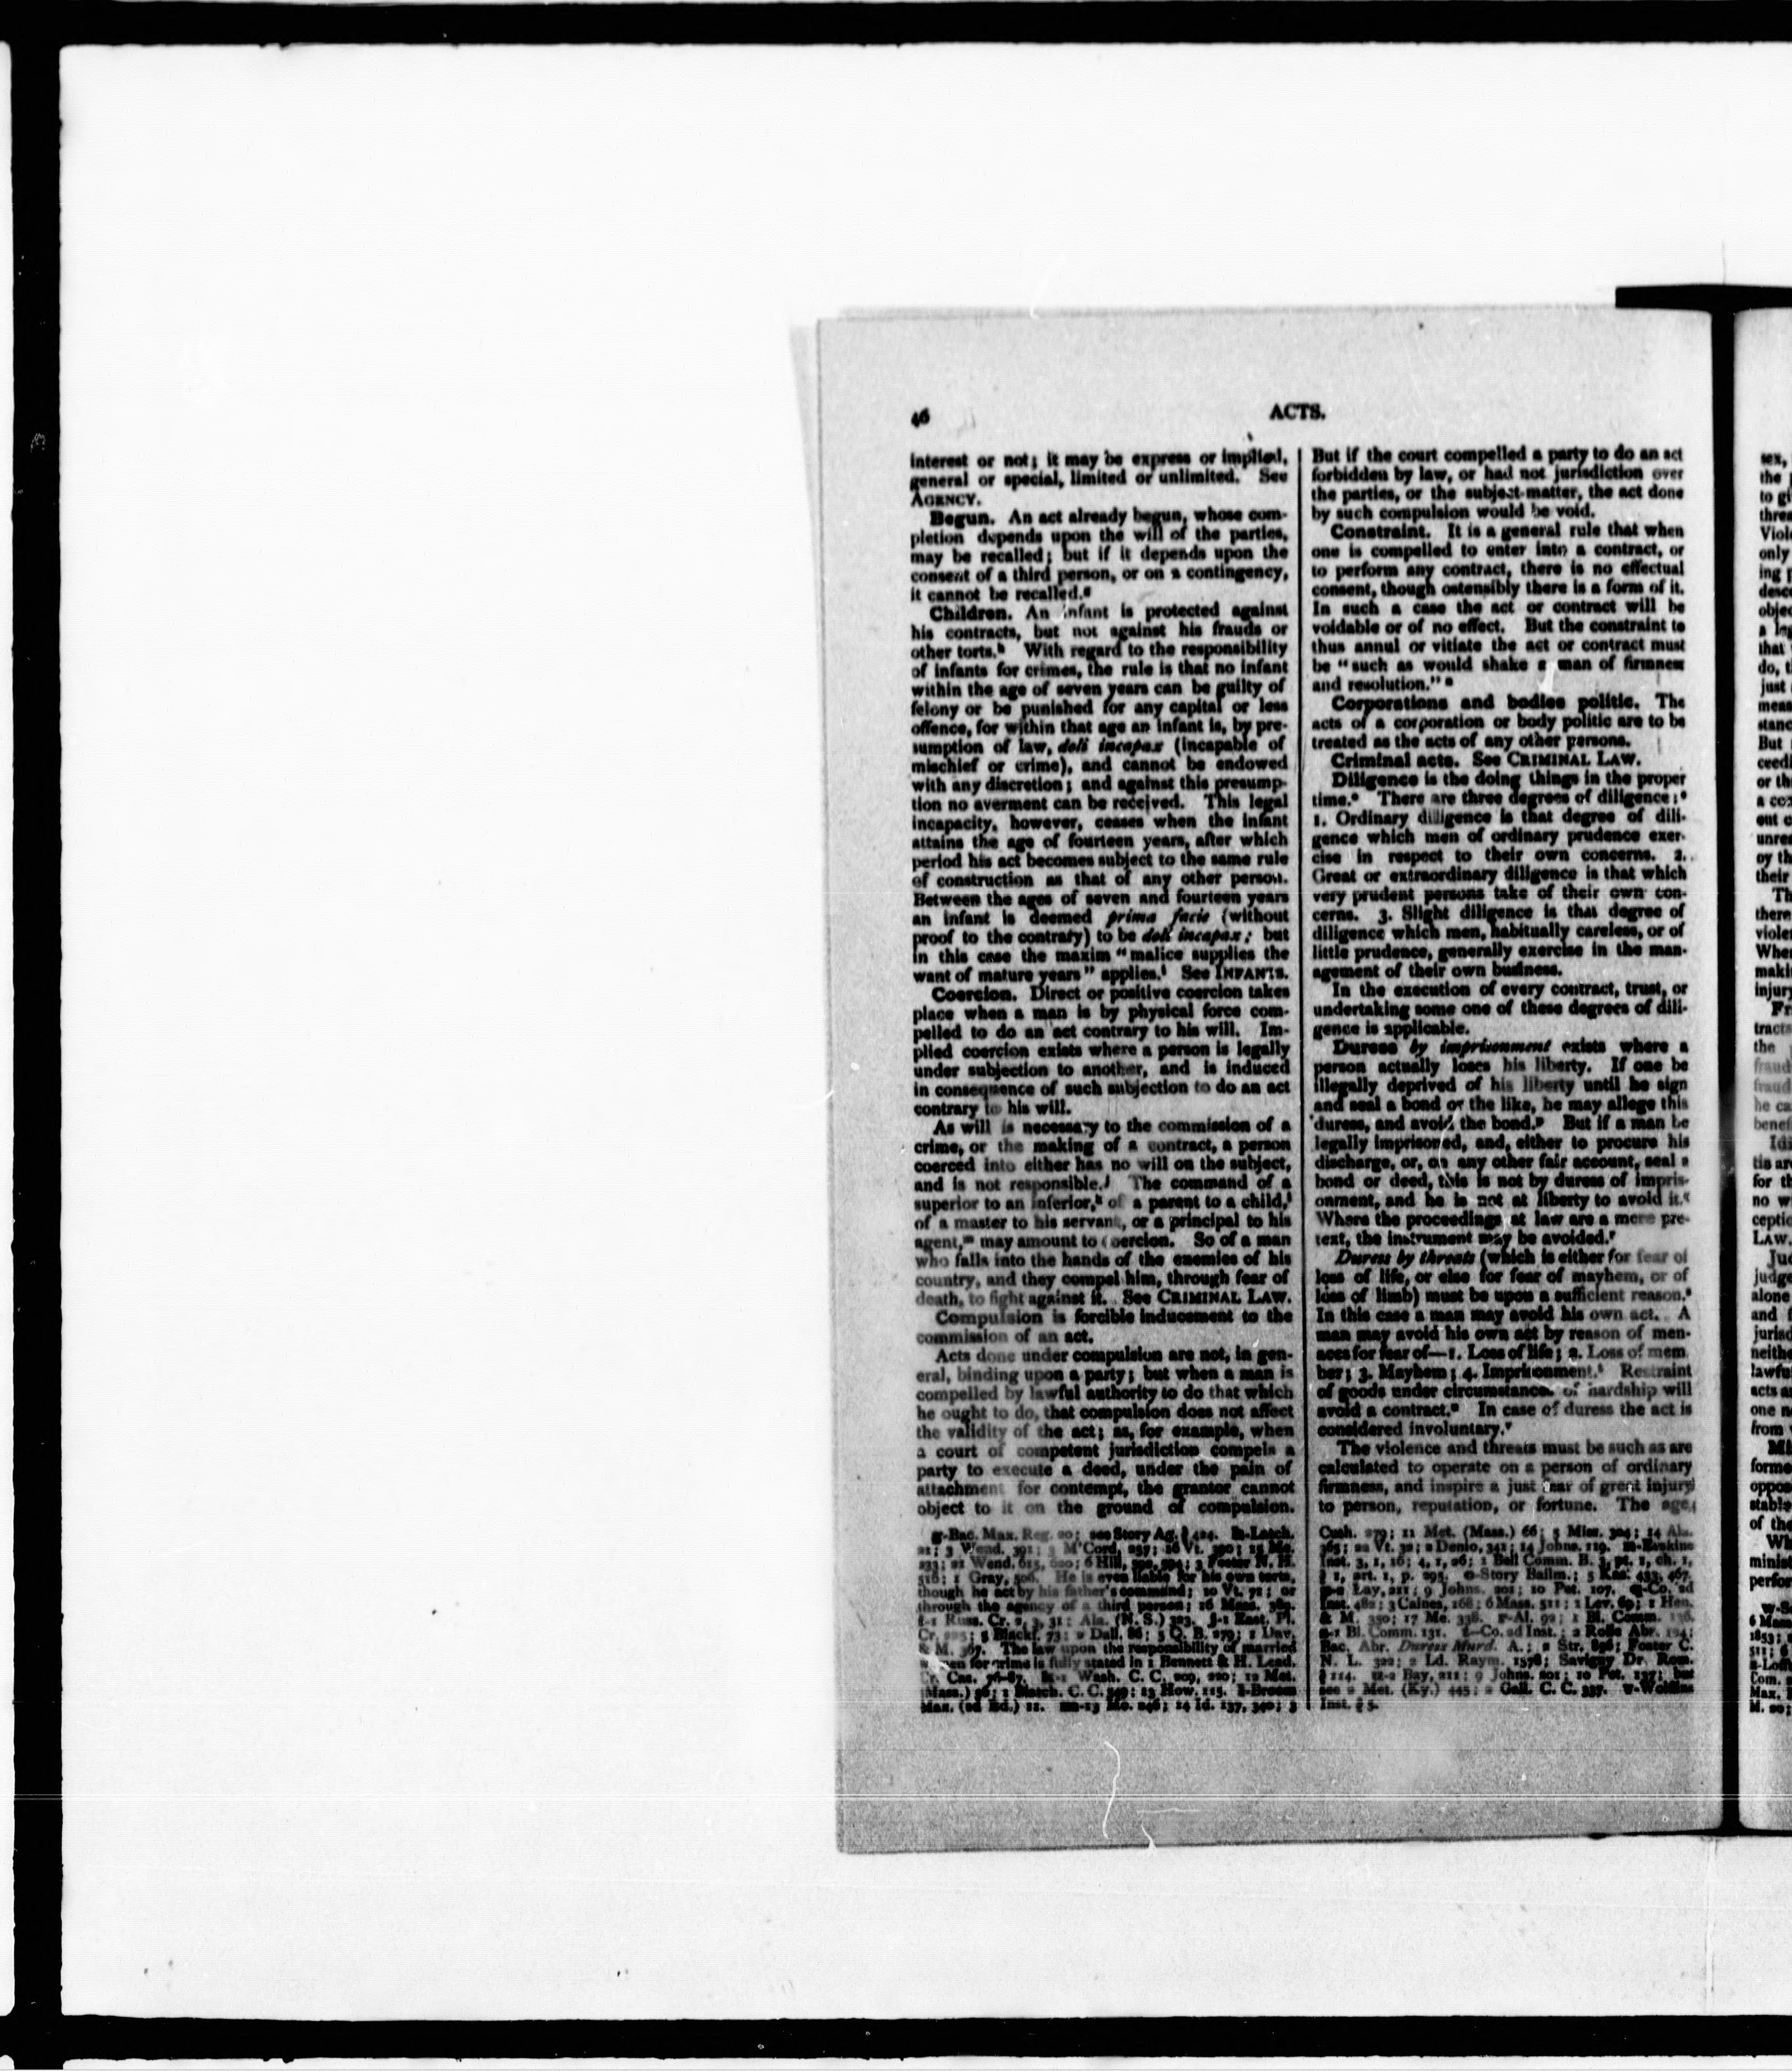 46
ACTS.
interest or not; it may be express or implied,
general or special, limited or unlimited. See
AGENCY.
Begun. An act already begun, whose com-
pletion depends upon the will of the parties,
may be recalled; but if it depends upon the
consent of a third person, or on a contingency,
it cannot be recalled.g
Children. An infant is protected against
his contracts, but not against his frauds or
other torts.h With regard to the responsibility
of infants for crimes, the rule is that no infant
within the age of seven years can be guilty of
felony or be punished for any capital or less
offence, for within that age an infant is, by pre-
sumption of law, doli incapax (incapable of
mischief or crime), and cannot be endowed
with any discretion; and against this presump-
tion no averment can be received. This legal
incapacity, however, ceases when the infant
attains the age of fourteen years, after which
period his act becomes subject to the same rule
of construction as that of any other person.
Between the ages of seven and fourteen years
an infant is deemed prima facie (without
proof to the contrary) to be doli incapax; but
in this case the maxim "malice supplies the
want of mature years" applies.i See INFANTS.
Coercion. Direct or positive coercion takes
place when a man is by physical force com-
pelled to do an act contrary to his will. Im-
plied coercion exists where a person is legally
under subjection to another, and is induced
in consequence of such subjection to do an act
contrary to his will.
As will is necessary to the commission of a
crime, or the making of a contract, a person
coerced into either has no will on the subject,
and is not responsible.j The command of a
superior to an inferior,k of a parent to a child,l
of a master to his servant, or a principal to his
agent,m may amount to coercion. So of a man
who falls into the hands of the enemies of his
country, and they compel him, through fear of
death, to fight against it. See CRIMINAL LAW.
Compulsion is forcible inducement to the
commission of an act.
Acts done under compulsion are not, in gen-
eral, binding upon a party; but when a man is
compelled by lawful authority to do that which
he ought to do, that compulsion does not affect
the validity of the act; as, for example, when
a court of competent jurisdiction compels a
party to execute a deed, under the pain of
attachment for contempt, the grantor cannot
object to it on the ground of compulsion.
g-Bac. Max. Reg. 20; see Story Ag. § 424. h-Latch.
21; 3 Wend. 391; 3 M'Cord, 257; 16 Vt. 390; 15 Me.
233; 21 Wend. 615, 620; 6 Hill, 3 Foster N. H.
516; 1 Gray, 506. He is even liable for his own torts,
though he act by his father's command; 20 Vt. 71; or
through the agency of a third person; 16 Mass. 389.
i-1 Russ. Cr. 2, 3, 31; Ala. (N. S.) 323. j-1 East, Pl.
Cr. 225; 5 Blackf. 73; 2 Dall. 86; 5 Q. B. 279; 1 Dav.
& M. 367. The law upon the responsibility of married
women for crime is fully stated in 1 Bennett & H. Lead.
Cr. Cas. 76-87. k-1 Wash. C. C. 209, 220; 12 Met.
(Mass.) 56; 1 Blatch. C. C. 549; 13 How. 115. l-Broom
Max. (2d Ed.) 11. m-13 Mo. 246; 14 Id. 137, 340; 3
But if the court compelled a party to do an act
forbidden by law, or had not jurisdiction over
the parties, or the subject-matter, the act done
by such compulsion would be void.
Constraint. It is a general rule that when
one is compelled to enter into a contract, or
to perform any contract, there is no effectual
consent, though ostensibly there is a form of it.
In such a case the act or contract will be
voidable or of no effect. But the constraint to
thus annul or vitiate the act or contract must
be "such as would shake a man of firmness
and resolution." n
Corporations and bodies politic. The
acts of a corporation or body politic are to be
treated as the acts of any other persons.
Criminal acts. See CRIMINAL LAW.
Diligence is the doing things in the proper
time.o There are three degrees of diligence:
1. Ordinary diligence is that degree of dili-
gence which men of ordinary prudence exer-
cise in respect to their own concerns. 2.
Great or extraordinary diligence is that which
very prudent persons take of their own con-
cerns. 3. Slight diligence is that degree of
diligence which men, habitually careless, or of
little prudence, generally exercise in the man-
agement of their own business.
In the execution of every contract, trust, or
undertaking some one of these degrees of dili-
gence is applicable.
Duress by imprisonment exists where a
person actually loses his liberty. If one be
illegally deprived of his liberty until he sign
and seal a bond or the like, he may allege this
duress, and avoid the bond.p But if a man be
legally imprisoned, and, either to procure his
discharge, or, on any other fair account, seal a
bond or deed, this is not by duress of impris-
onment, and he is not at liberty to avoid it.q
Where the proceedings at law are a mere pre-
text, the instrument may be avoided.r
Duress by threats (which is either for fear of
loss of life, or else for fear of mayhem, or of
loss of limb) must be upon a sufficient reason.s
In this case a man may avoid his own act. A
man may avoid his own act by reason of men-
aces for fear of—1. Loss of life; 2. Loss of mem
ber; 3. Mayhem; 4. Imprisonment.t Restraint
of goods under circumstances of hardship will
avoid a contract.u In case of duress the act is
considered involuntary.v
The violence and threats must be such as are
calculated to operate on a person of ordinary
firmness, and inspire a just fear of great injury
to person, reputation, or fortune. The age,
Cush. 279; 11 Met. (Mass.) 66; 5 Miss. 304; 14 Ala.
365; 22 Vt. 32; 2 Denio, 341; 14 Johns. 119. n-Erskine
Inst. 3, 1, 16; 4, 1, 26; 1 Bell Comm. B. 3, pt. 1, ch. 1,
§ 1, art. 1, p. 295. o-Story Bailm.; 5 Kas. 433, 467.
p-2 Lay, 211; 9 Johns. 201; 10 Pet. 107. q-Co. 2d
Inst. 482; 3 Caines, 168; 6 Mass. 511; 1 Lev. 69; 1 Hen.
& M. 350; 17 Me. 338. r-Al. 92; 1 Bl. Comm. 136.
s-1 Bl. Comm. 131. t-Co. 2d Inst.; 2 Rolle Abr. 124;
Bac. Abr. Duress Murd. A.; 2 Str. 856; Foster C.
N. L. 322; 2 Ld. Raym. 1578; Savigny Dr. Rom.
§ 114. u-2 Bay, 211; 9 Johns. 201; 10 Pet. 137; but
see 2 Met. (Ky.) 445; 2 Gall. C. C. 337. v-Wolffius
Inst. § 5.